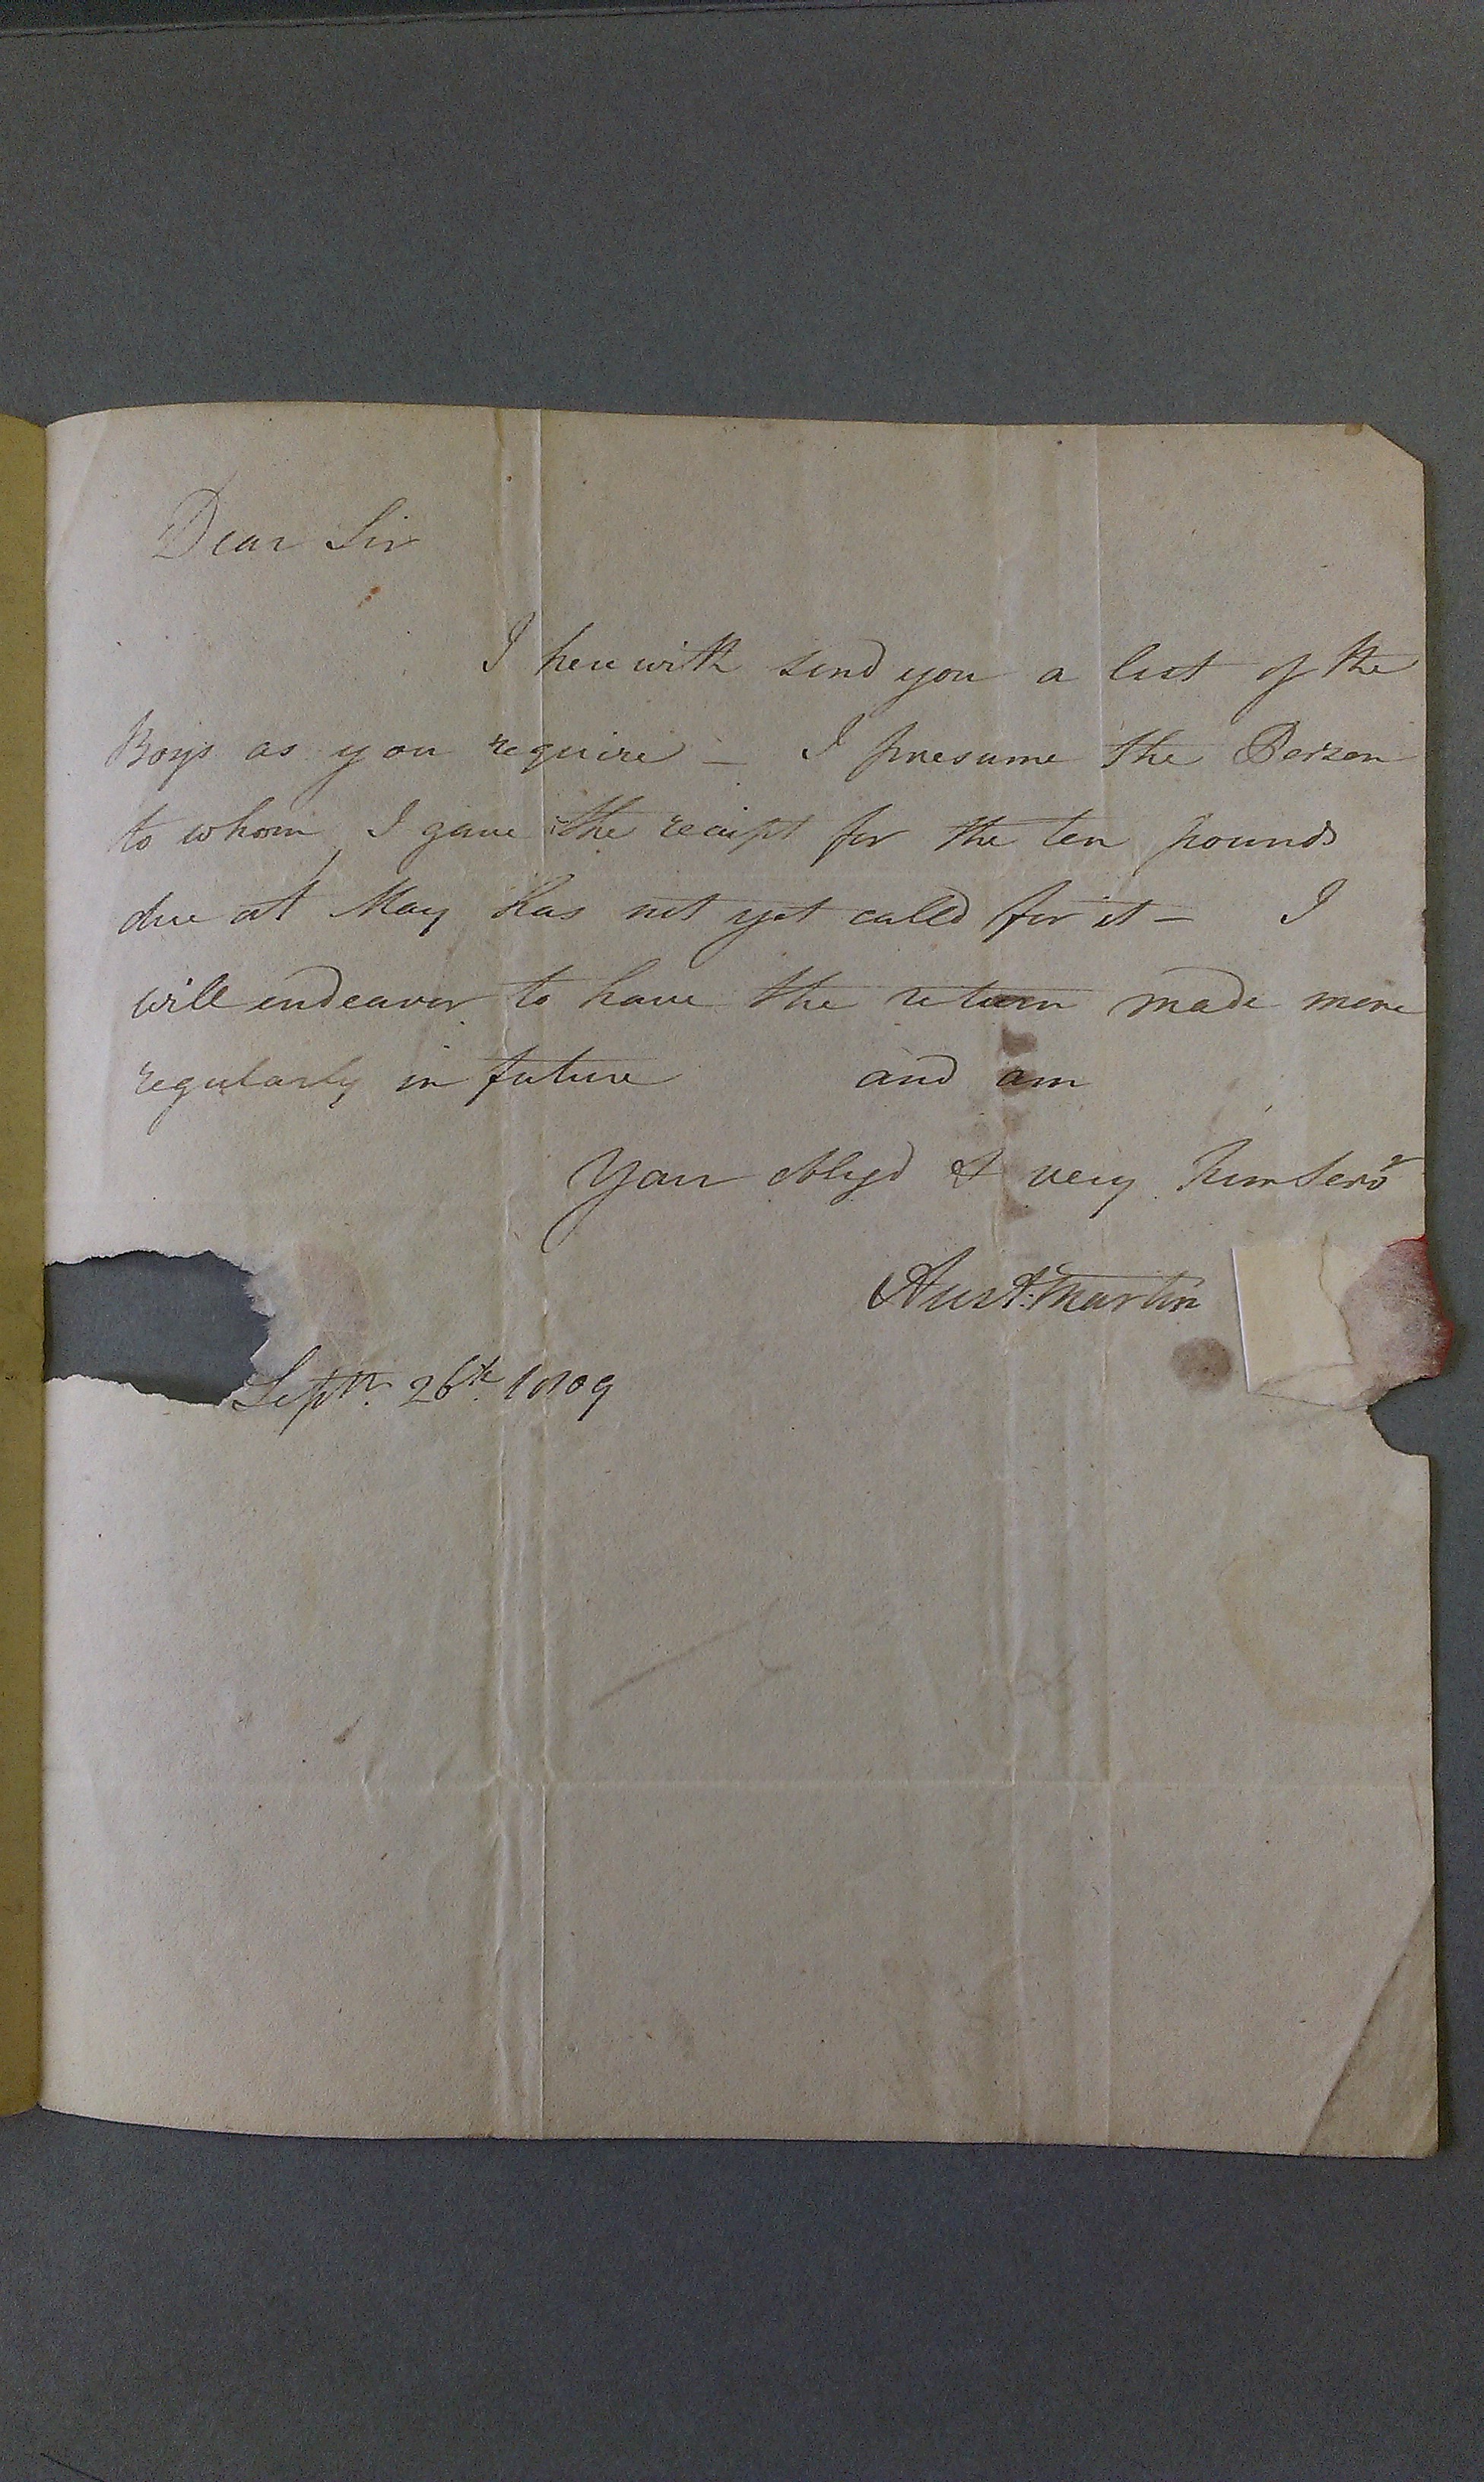 Dear Sir
I herewith send you a list of the
Boys as you require - I presume the Person
to whom I gave the receipt for the ten pounds
due at May has not yet called for it - I
will endeavor to have the return made more
regularly in future and am
Your oblig'd & very hum Serv't
Aus't: Martin
Sept'r. 26th. 1809